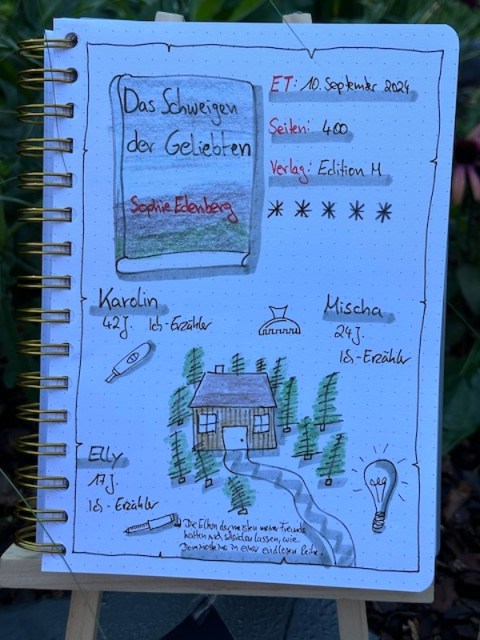 Das Schweigen
der Geliebten
Sophie Edenberg
ET: 10. September 2024
Seiten: 400
Verlag: Edition M
Karolin
42 J. Ich-Erzähler
Mischa
24 J.
Ich-Erzähler
Elly
17 J.
Ich-Erzähler
Die Eltern der meisten meiner Freunde
hatten sich scheiden lassen, wie
Dominosteine in einer endlosen Reihe.